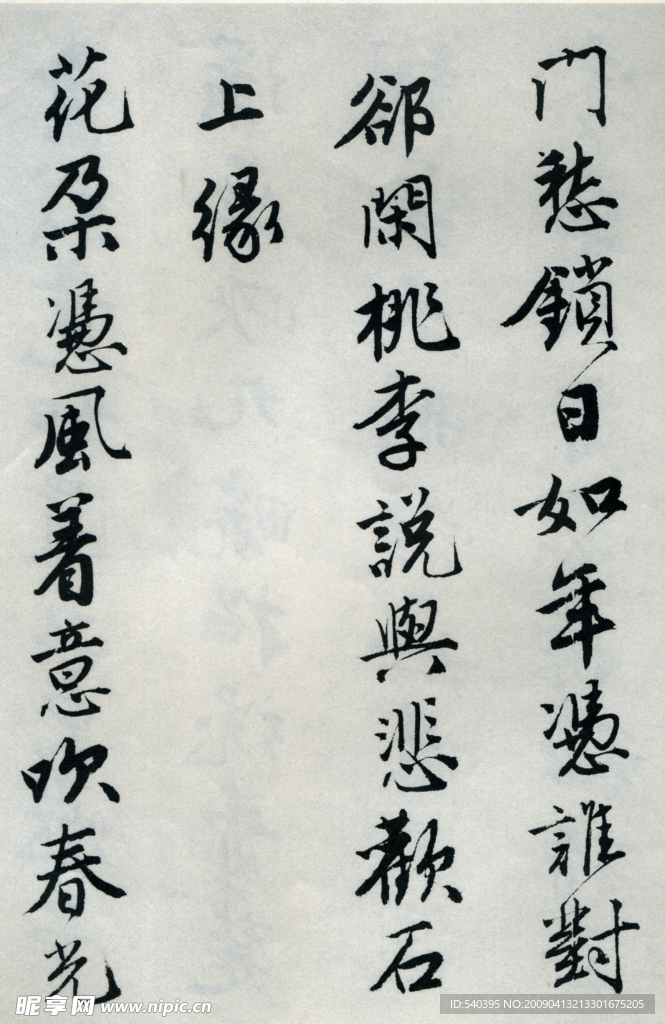 门愁鎖日如年憑誰對
郤閑桃李說與悲歡石
上緣
花朶憑風着意吹春光
昵享网 www.nipic.cn
ID:540395 NO:20090413213301675205